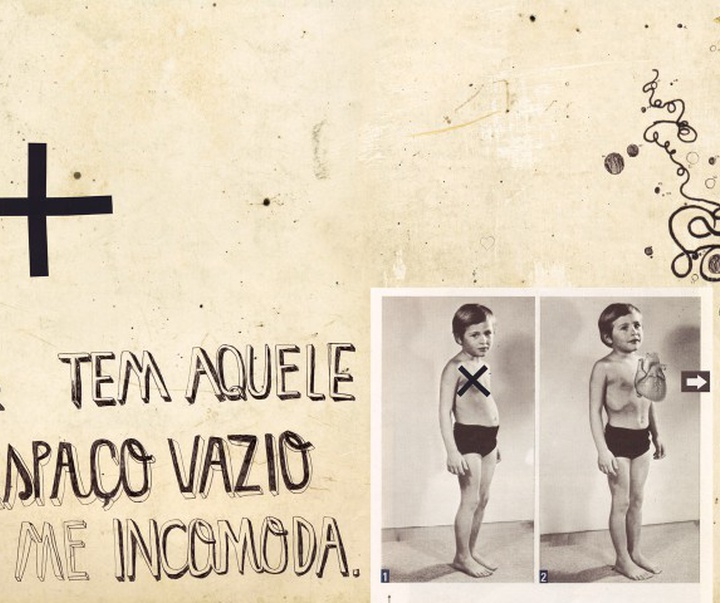 TEM AQUELE
SPAÇO VAZIO
ME INCOMODA.
1 2